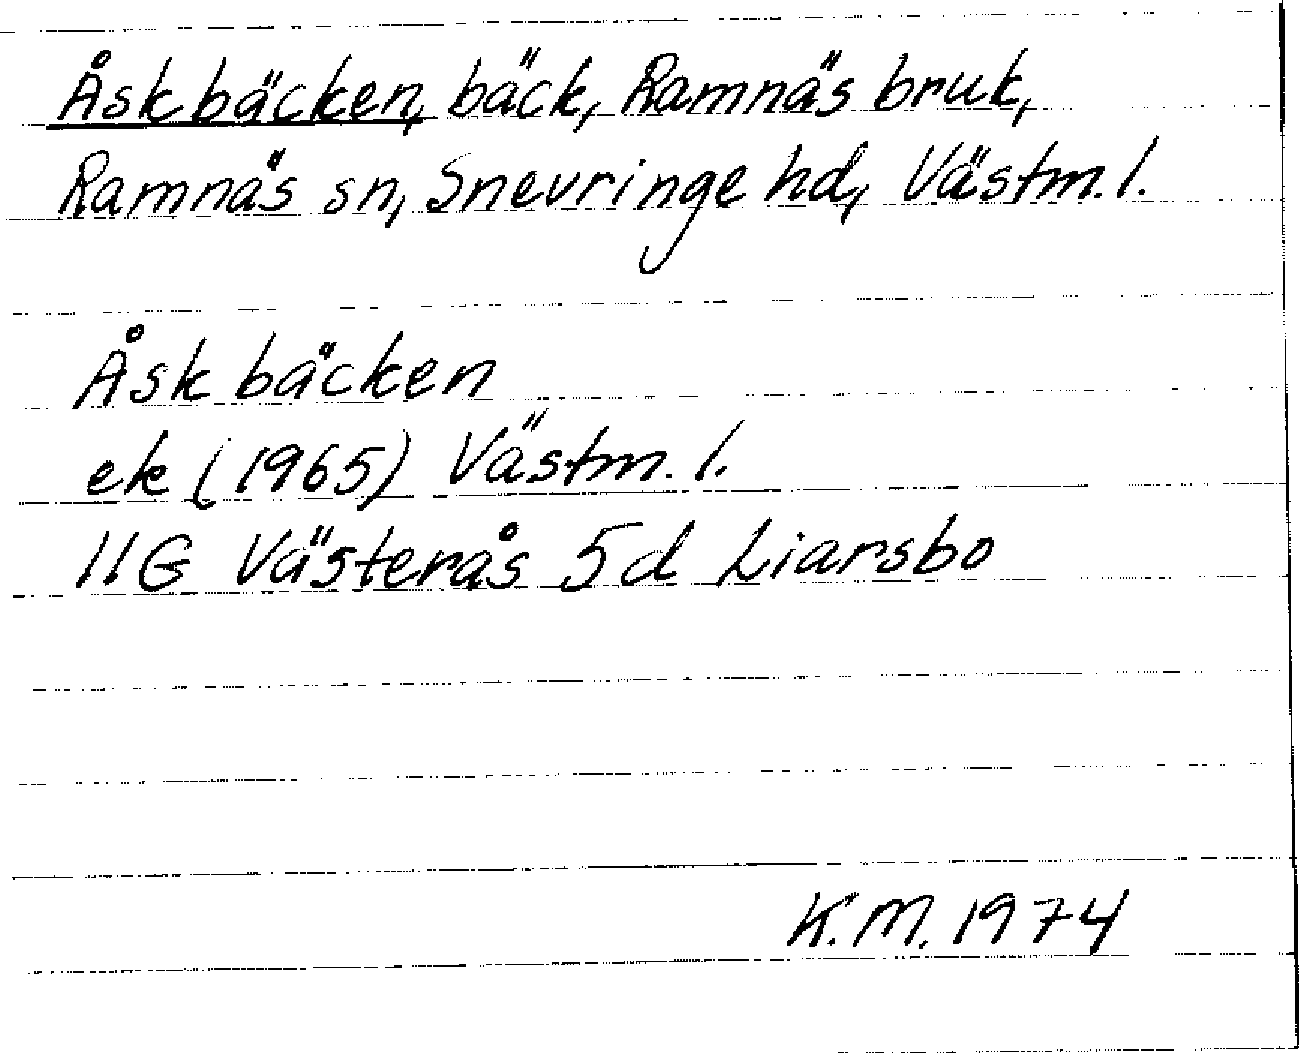 Åskbäcken, bäck, Ramnäs bruk,
Ramnäs sn, Snevringe hd, Västm. l.
Åskbäcken
ek (1965) Västm. l.
11G Västerås 5d Liarsbo
K.M. 1974